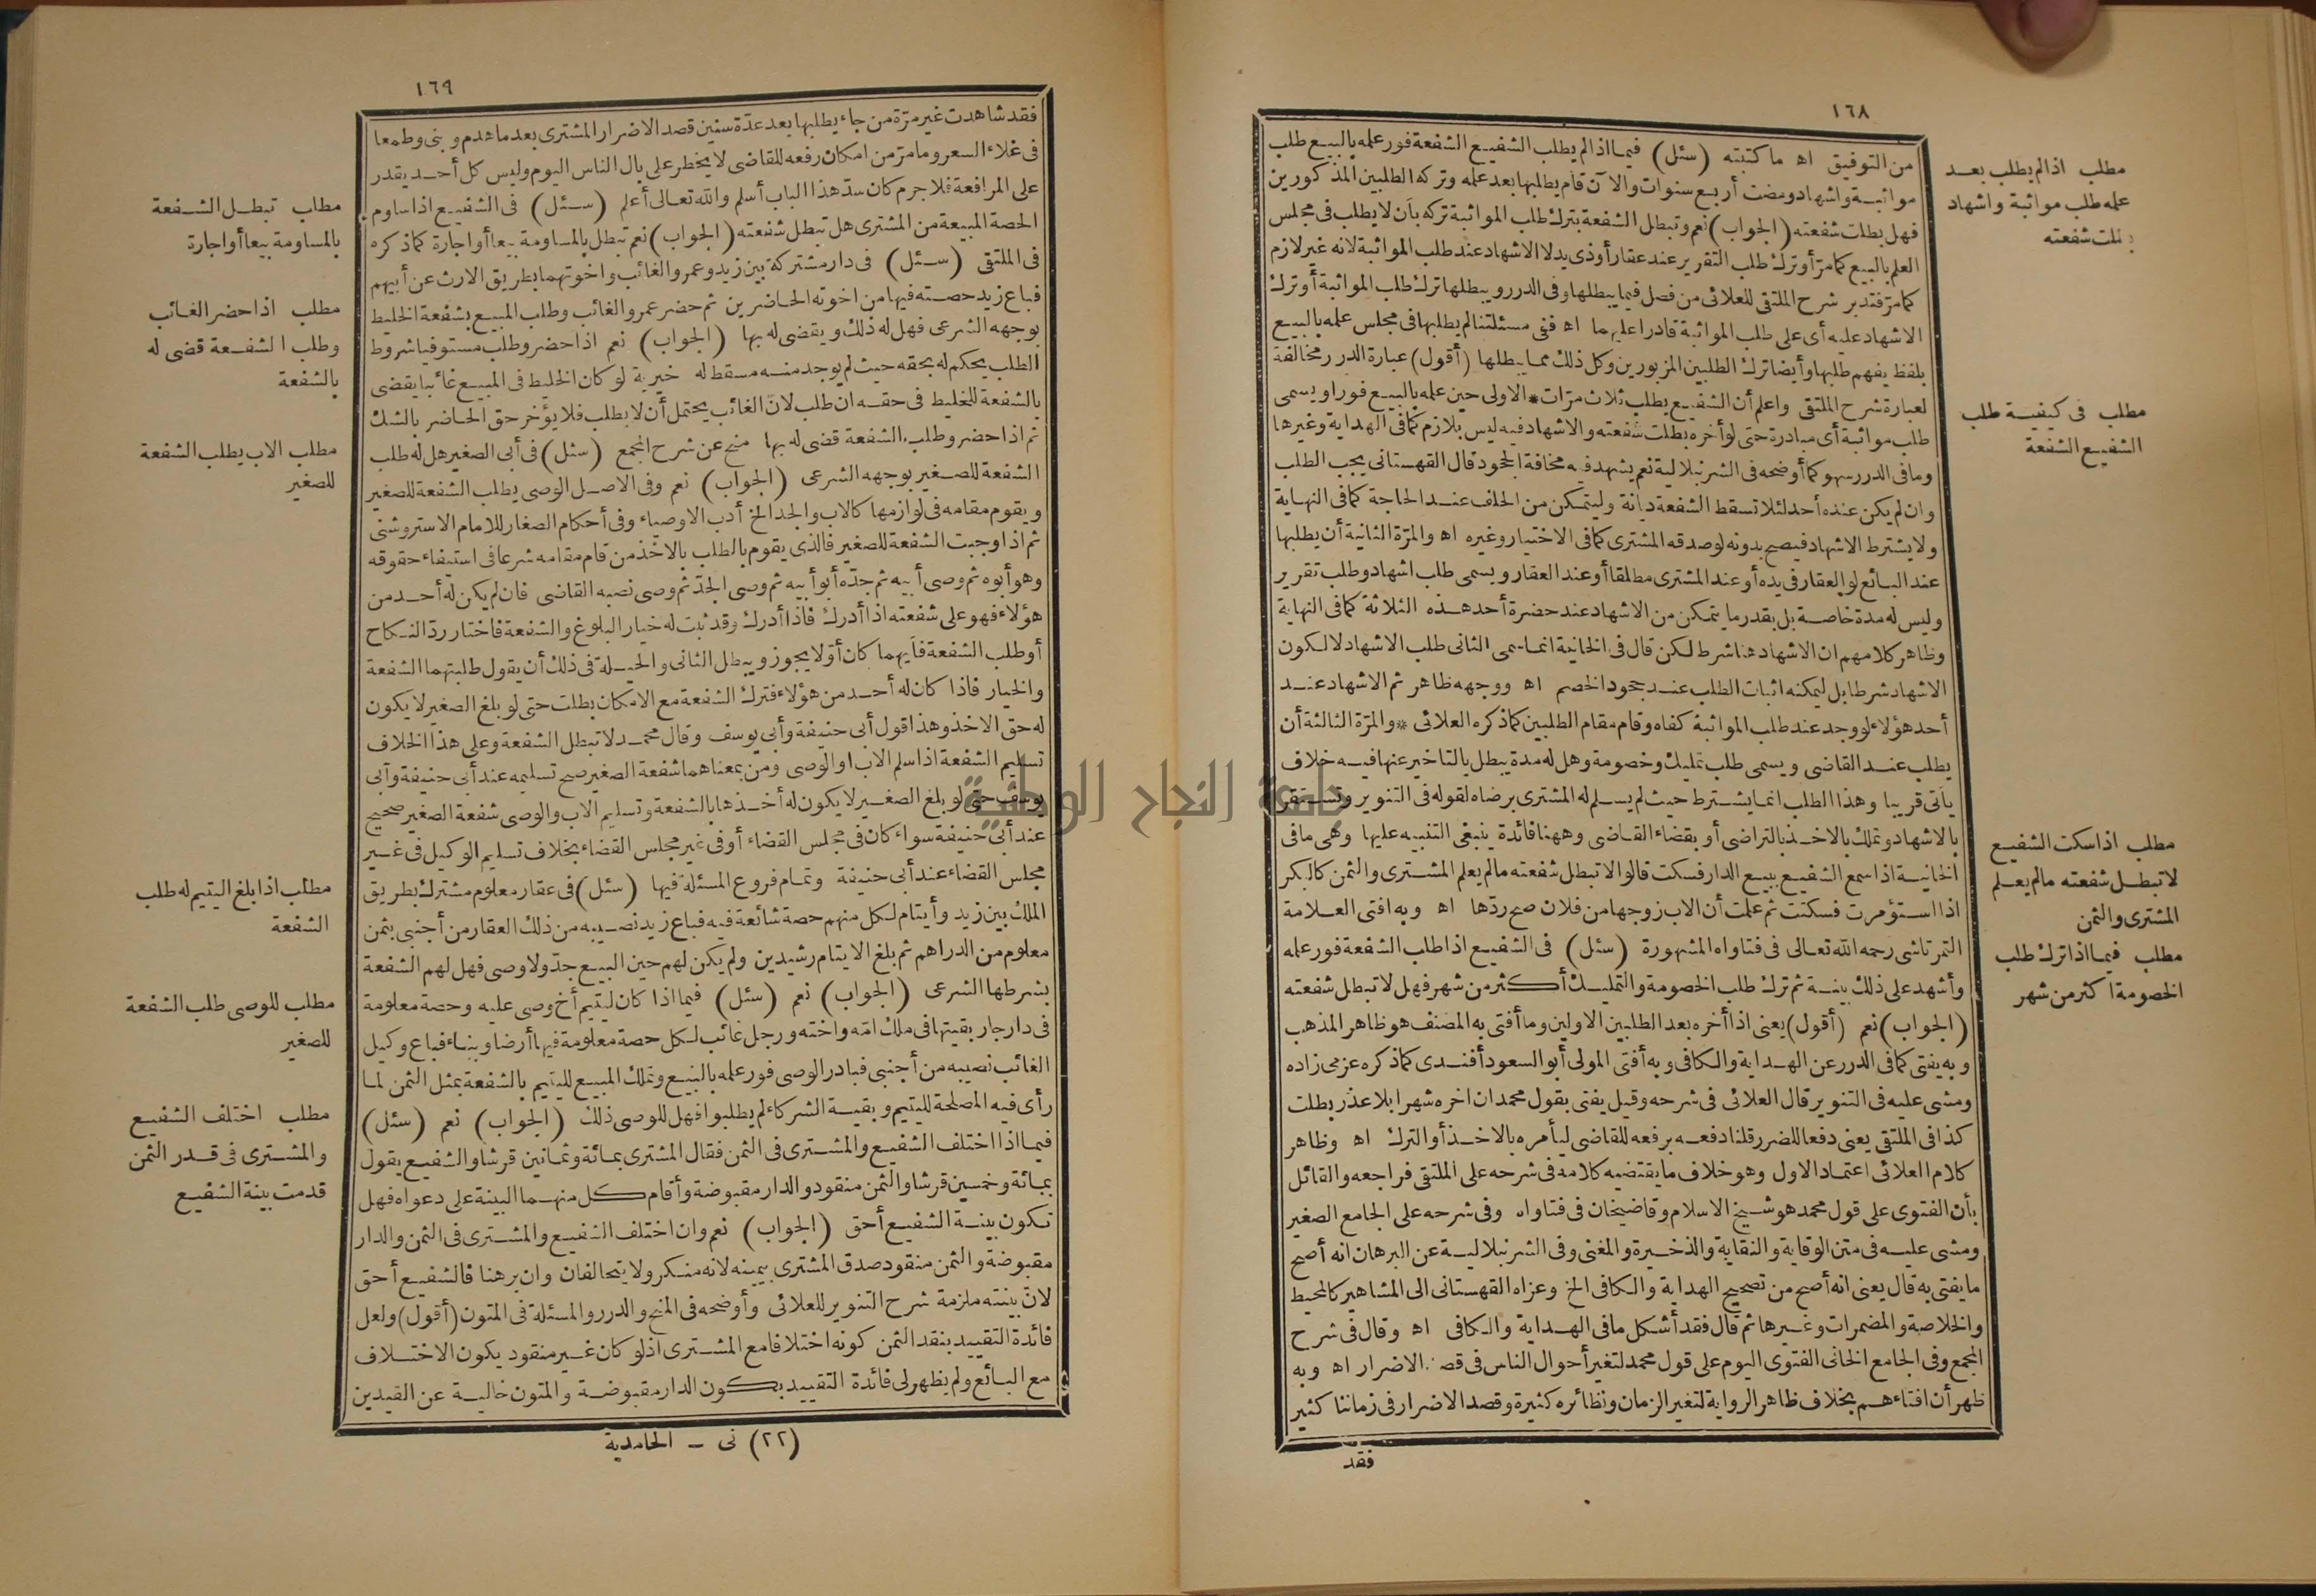 ١٦٨
من التوفيق اه ما كتبته (سئل) فيما اذا لم يطلب الشفيع الشفعة فور علمه بالبيع طلب
مواثبة واشهاد ومضت أربع سنوات والآن قام يطلبها بعد علمه وتركه الطلبين المذكورين
فهل بطلت شفعته (الجواب) نعم وتبطل الشفعة بترك طلب المواثبة تركه بأن لا يطلب فى مجلس
العلم بالبيع كما مر أو ترك طلب التقرير عند عقار أو ذى يد لا الاشهاد عند طلب المواثبة لانه غير لازم
كما مر فتدبر شرح الملتقى للعلائى من فصل فيما يبطلها وفى الدرر ويبطلها ترك طلب المواثبة أو ترك
الاشهاد عليه أى على طلب المواثبة قادرا عليهما اه ففى مسئلتنا لم يطلبها فى مجلس علمه بالبيع
بلفظ يفهم طلبها وأيضا ترك الطلبين المزبورين وكل ذلك مما يبطلها (أقول) عبارة الدرر مخالفة
لعبارة شرح الملتقى واعلم أن الشفيع يطلب ثلاث مرّات * الاولى حين علمه بالبيع فورا ويسمى
طلب مواثبة أى مبادرة حتى لو أخره بطلت شفعته والاشهاد فيه ليس بلازم كما فى الهداية وغيرها
وما فى الدرر سهو كما أوضحه فى الشرنبلالية نعم يشهد فيه مخافة الجحود قال القهستانى يجب الطلب
وان لم يكن عنده أحد لئلا تسقط الشفعة ديانة وليتمكن من الحلف عند الحاجة كما فى النهاية
ولا يشترط الاشهاد فيصح بدونه لو صدقه المشترى كما فى الاختيار وغيره اه والمرّة الثانية أن يطلبها
عند البائع لو العقار فى يده أو عند المشترى مطلقا أو عند العقار ويسمى طلب اشهاد وطلب تقرير
وليس له مدة خاصة بل بقدر ما يتمكن من الاشهاد عند حضرة أحد هذه الثلاثة كما فى النهاية
وظاهر كلامهم ان الاشهاد هنا شرط لكن قال فى الخانية انما سمى الثانى طلب الاشهاد لا لكون
الاشهاد شرطا بل ليمكنه اثبات الطلب عند جحود الخصم اه ووجهه ظاهر ثم الاشهاد عند
أحد هؤلاء لو وجد عند طلب المواثبة كفاه وقام مقام الطلبين كما ذكره العلائى * والمرّة الثالثة أن
يطلب عند القاضى ويسمى طلب تمليك وخصومة وهل له مدة يبطل بالتاخير عنها فيه خلاف
يأتى قريبا وهذا الطلب انما يشترط حيث لم يسلم له المشترى برضاه لقوله فى التنوير وتستقر
بالاشهاد وتملك بالاخذ بالتراضى أو بقضاء القاضى وههنا فائدة ينبغى التنبيه عليها وهى ما فى
الخانية اذا سمع الشفيع ببيع الدار فسكت قالوا لا تبطل شفعته ما لم يعلم المشترى والثمن كالبكر
اذا استؤمرت فسكتت ثم علمت أن الاب زوجها من فلان صح ردّها اه وبه افتى العلامة
التمرتاشى رحمه الله تعالى فى فتاواه المشهورة (سئل) فى الشفيع اذا طلب الشفعة فور علمه
وأشهد على ذلك بينة ثم ترك طلب الخصومة والتمليك أكثر من شهر فهل لا تبطل شفعته
(الجواب) نعم (أقول) يعنى اذا أخره بعد الطلبين الاولين وما أفتى به المصنف هو ظاهر المذهب
وبه يفتى كما فى الدرر عن الهداية والكافى وبه أفتى المولى أبو السعود أفندى كما ذكره عزمى زاده
ومشى عليه فى التنوير قال العلائى فى شرحه وقيل يفتى بقول محمد ان اخره شهرا بلا عذر بطلت
كذا فى الملتقى يعنى دفعا للضرر قلنا دفعه برفعه للقاضى ليأمره بالاخذ أو الترك اه وظاهر
كلام العلائى اعتماد الاول وهو خلاف ما يقتضيه كلامه فى شرحه على الملتقى فراجعه والقائل
بأن الفتوى على قول محمد هو شيخ الاسلام وقاضيخان فى فتاواه وفى شرحه على الجامع الصغير
ومشى عليه فى متن الوقاية والنقاية والذخيرة والمغنى وفى الشرنبلالية عن البرهان انه أصح
ما يفتى به قال يعنى انه أصح من تصحيح الهداية والكافى الخ وعزاه القهستانى الى المشاهير كالمحيط
والخلاصة والمضمرات وغيرها ثم قال فقد أشكل ما فى الهداية والكافى اه وقال فى شرح
المجمع وفى الجامع الخانى الفتوى اليوم على قول محمد لتغير أحوال الناس فى قصد الاضرار اه وبه
ظهر أن افتاءهم بخلاف ظاهر الرواية لتغير الزمان ونظائره كثيرة وقصد الاضرار فى زماننا كثير
فقد
مطلب اذا لم يطلب بعد
علمه طلب مواثبة واشهاد
بطلت شفعته
مطلب فى كيفية طلب
الشفيع الشفعة
مطلب اذا سكت الشفيع
لا تبطل شفعته ما لم يعلم
المشترى والثمن
مطلب فيما اذا ترك طلب
الخصومة اكثر من شهر
١٦٩
فقد شاهدت غير مرّة من جاء يطلبها بعد عدّة سنين قصد الاضرار المشترى بعد ما هدم وبنى وطمعا
فى غلاء السعر وما مرّ من امكان رفعه للقاضى لا يخطر على بال الناس اليوم وليس كل أحد يقدر
على المرافعة فلا جرم كان سدّ هذا الباب أسلم والله تعالى أعلم (سئل) فى الشفيع اذا ساوم
الحصة المبيعة من المشترى هل تبطل شفعته (الجواب) نعم تبطل بالمساومة بيعا أو اجارة كما ذكره
فى الملتقى (سئل) فى دار مشتركة بين زيد وعمرو الغائب واخوتهما بطريق الارث عن أبيهم
فباع زيد حصته فيها من اخوته الحاضرين ثم حضر عمرو الغائب وطلب المبيع بشفعة الخليط
بوجهه الشرعى فهل له ذلك ويقضى له بها (الجواب) نعم اذا حضر وطلب مستوفيا شروط
الطلب يحكم له بحقه حيث لم يوجد منه مسقط له خيرية لو كان الخليط فى المبيع غائبا يقضى
بالشفعة للخليط فى حقه ان طلب لانّ الغائب يحتمل أن لا يطلب فلا يؤخر حق الحاضر بالشك
ثم اذا حضر وطلب الشفعة قضى له بها منح عن شرح المجمع (سئل) فى أبى الصغير هل له طلب
الشفعة للصغير بوجهه الشرعى (الجواب) نعم وفى الاصل الوصى يطلب الشفعة للصغير
ويقوم مقامه فى لوازمها كالاب والجد الخ أدب الاوصياء وفى أحكام الصغار للامام الاستروشنى
ثم اذا وجبت الشفعة للصغير فالذى يقوم بالطلب بالاخذ من قام مقامه شرعا فى استيفاء حقوقه
وهو أبوه ثم وصى أبيه ثم جدّه أبو أبيه ثم وصى الجدّ ثم وصى نصبه القاضى فان لم يكن له أحد من
هؤلاء فهو على شفعته اذا أدرك فاذا أدرك وقد ثبت له خيار البلوغ والشفعة فاختار ردّ النكاح
أو طلب الشفعة فأيهما كان أوّلا يجوز ويبطل الثانى والحيلة فى ذلك أن يقول طلبتهما الشفعة
والخيار فاذا كان له أحد من هؤلاء فترك الشفعة مع الامكان بطلت حتى لو بلغ الصغير لا يكون
له حق الاخذ وهذا قول أبى حنيفة وأبى يوسف وقال محمد لا تبطل الشفعة وعلى هذا الخلاف
تسليم الشفعة اذا سلم الاب او الوصى ومن بمعناهما شفعة الصغير صح تسليمه عند أبى حنيفة وأبى
يوسف حتى لو بلغ الصغير لا يكون له أخذها بالشفعة وتسليم الاب والوصى شفعة الصغير صحيح
عند أبى حنيفة سواء كان فى مجلس القضاء أو فى غير مجلس القضاء بخلاف تسليم الوكيل فى غير
مجلس القضاء عند أبى حنيفة وتمام فروع المسئلة فيها (سئل) فى عقار معلوم مشترك بطريق
الملك بين زيد وأيتام لكل منهم حصة شائعة فيه فباع زيد نصيبه من ذلك العقار من أجنبى بثمن
معلوم من الدراهم ثم بلغ الايتام رشيدين ولم يكن لهم حين البيع جدّ ولا وصى فهل لهم الشفعة
بشرطها الشرعى (الجواب) نعم (سئل) فيما اذا كان ليتيم أخ وصى عليه وحصة معلومة
فى دار جار بقيتها فى ملك امّه واخته ورجل غائب لكل حصة معلومة فيها أرضا وبناء فباع وكيل
الغائب نصيبه من أجنبى فبادر الوصى فور علمه بالبيع وتملك المبيع لليتيم بالشفعة بمثل الثمن لما
رأى فيه المصلحة لليتيم وبقية الشركاء لم يطلبوا فهل للوصى ذلك (الجواب) نعم (سئل)
فيما اذا اختلف الشفيع والمشترى فى الثمن فقال المشترى بمائة وثمانين قرشا والشفيع يقول
بمائة وخمسين قرشا والثمن منقود والدار مقبوضة وأقام كل منهما البينة على دعواه فهل
تكون بينة الشفيع أحق (الجواب) نعم وان اختلف الشفيع والمشترى فى الثمن والدار
مقبوضة والثمن منقود صدق المشترى بيمينه لانه منكر ولا يتحالفان وان برهنا فالشفيع أحق
لانّ بينته ملزمة شرح التنوير للعلائى وأوضحه فى المنح والدرر والمسئلة فى المتون (أقول) ولعل
فائدة التقييد بنقد الثمن كونه اختلافا مع المشترى اذ لو كان غير منقود يكون الاختلاف
مع البائع ولم يظهر لى فائدة التقييد بكون الدار مقبوضة والمتون خالية عن القيدين
(٢٢) نى - الحامدية
مطلب تبطل الشفعة
بالمساومة بيعا أو اجارة
مطلب اذا حضر الغائب
وطلب الشفعة قضى له
بالشفعة
مطلب الاب يطلب الشفعة
للصغير
مطلب اذا بلغ اليتيم له طلب
الشفعة
مطلب للوصى طلب الشفعة
للصغير
مطلب اختلف الشفيع
والمشترى فى قدر الثمن
قدمت بينة الشفيع
جامعة النجاح الوطنية